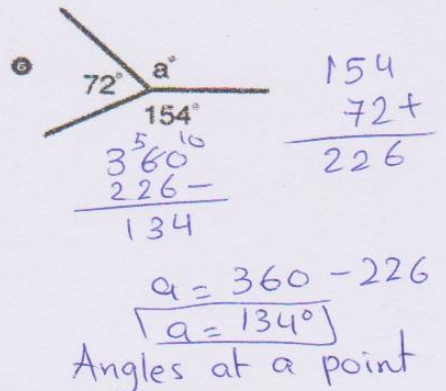 6
72° a°
154°
154
72+
226
3⁵6¹⁰0
226-
134
a = 360 - 226
a = 134°
Angles at a point